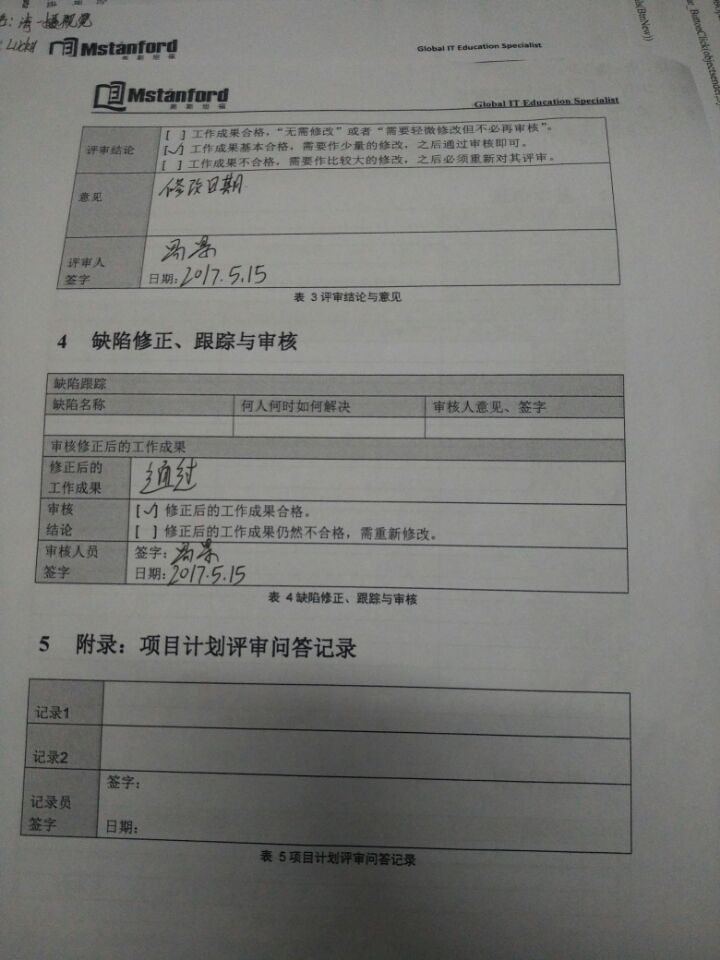 Lucky
Mstanford
美斯坦福
Global IT Education Specialist
Mstanford
美斯坦福
Global IT Education Specialist
评审结论
[ ] 工作成果合格，“无需修改”或者“需要轻微修改但不必再审核”。
[√] 工作成果基本合格，需要作少量的修改，之后通过审核即可。
[ ] 工作成果不合格，需要作比较大的修改，之后必须重新对其评审。
意见
修改日期.
评审人
签字
日期: 2017.5.15
表 3 评审结论与意见
4 缺陷修正、跟踪与审核
缺陷跟踪
缺陷名称 何人何时如何解决 审核人意见、签字
审核修正后的工作成果
修正后的
工作成果
通过
审核
结论
[√] 修正后的工作成果合格。
[ ] 修正后的工作成果仍然不合格，需重新修改。
审核人员
签字
签字:
日期: 2017.5.15
表 4 缺陷修正、跟踪与审核
5 附录：项目计划评审问答记录
记录1
记录2
记录员
签字
签字:
日期:
表 5 项目计划评审问答记录